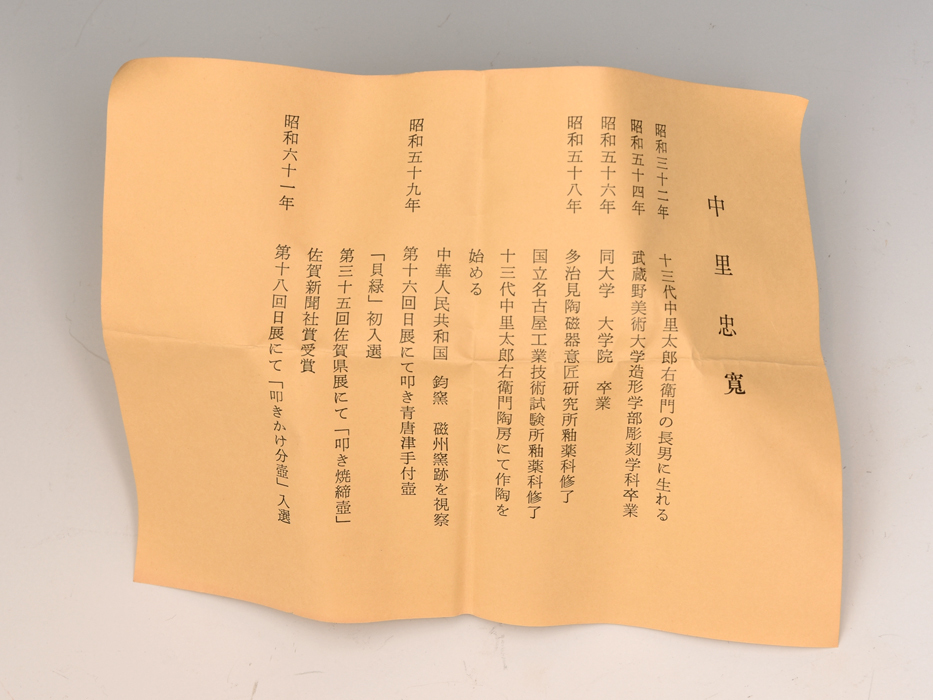 中里忠寬
昭和三十二年 十三代中里太郎右衛門の長男に生れる
昭和五十四年 武蔵野美術大学造形学部彫刻学科卒業
昭和五十六年 同大学 大学院 卒業
昭和五十八年 多治見陶磁器意匠研究所釉薬科修了
国立名古屋工業技術試験所釉薬科修了
十三代中里太郎右衛門陶房にて作陶を
始める
中華人民共和国 鈞窯 磁州窯跡を視察
昭和五十九年 第十六回日展にて叩き青唐津手付壺
「貝緑」初入選
第三十五回佐賀県展にて「叩き焼締壺」
佐賀新聞社賞受賞
昭和六十一年 第十八回日展にて「叩きかけ分壺」入選